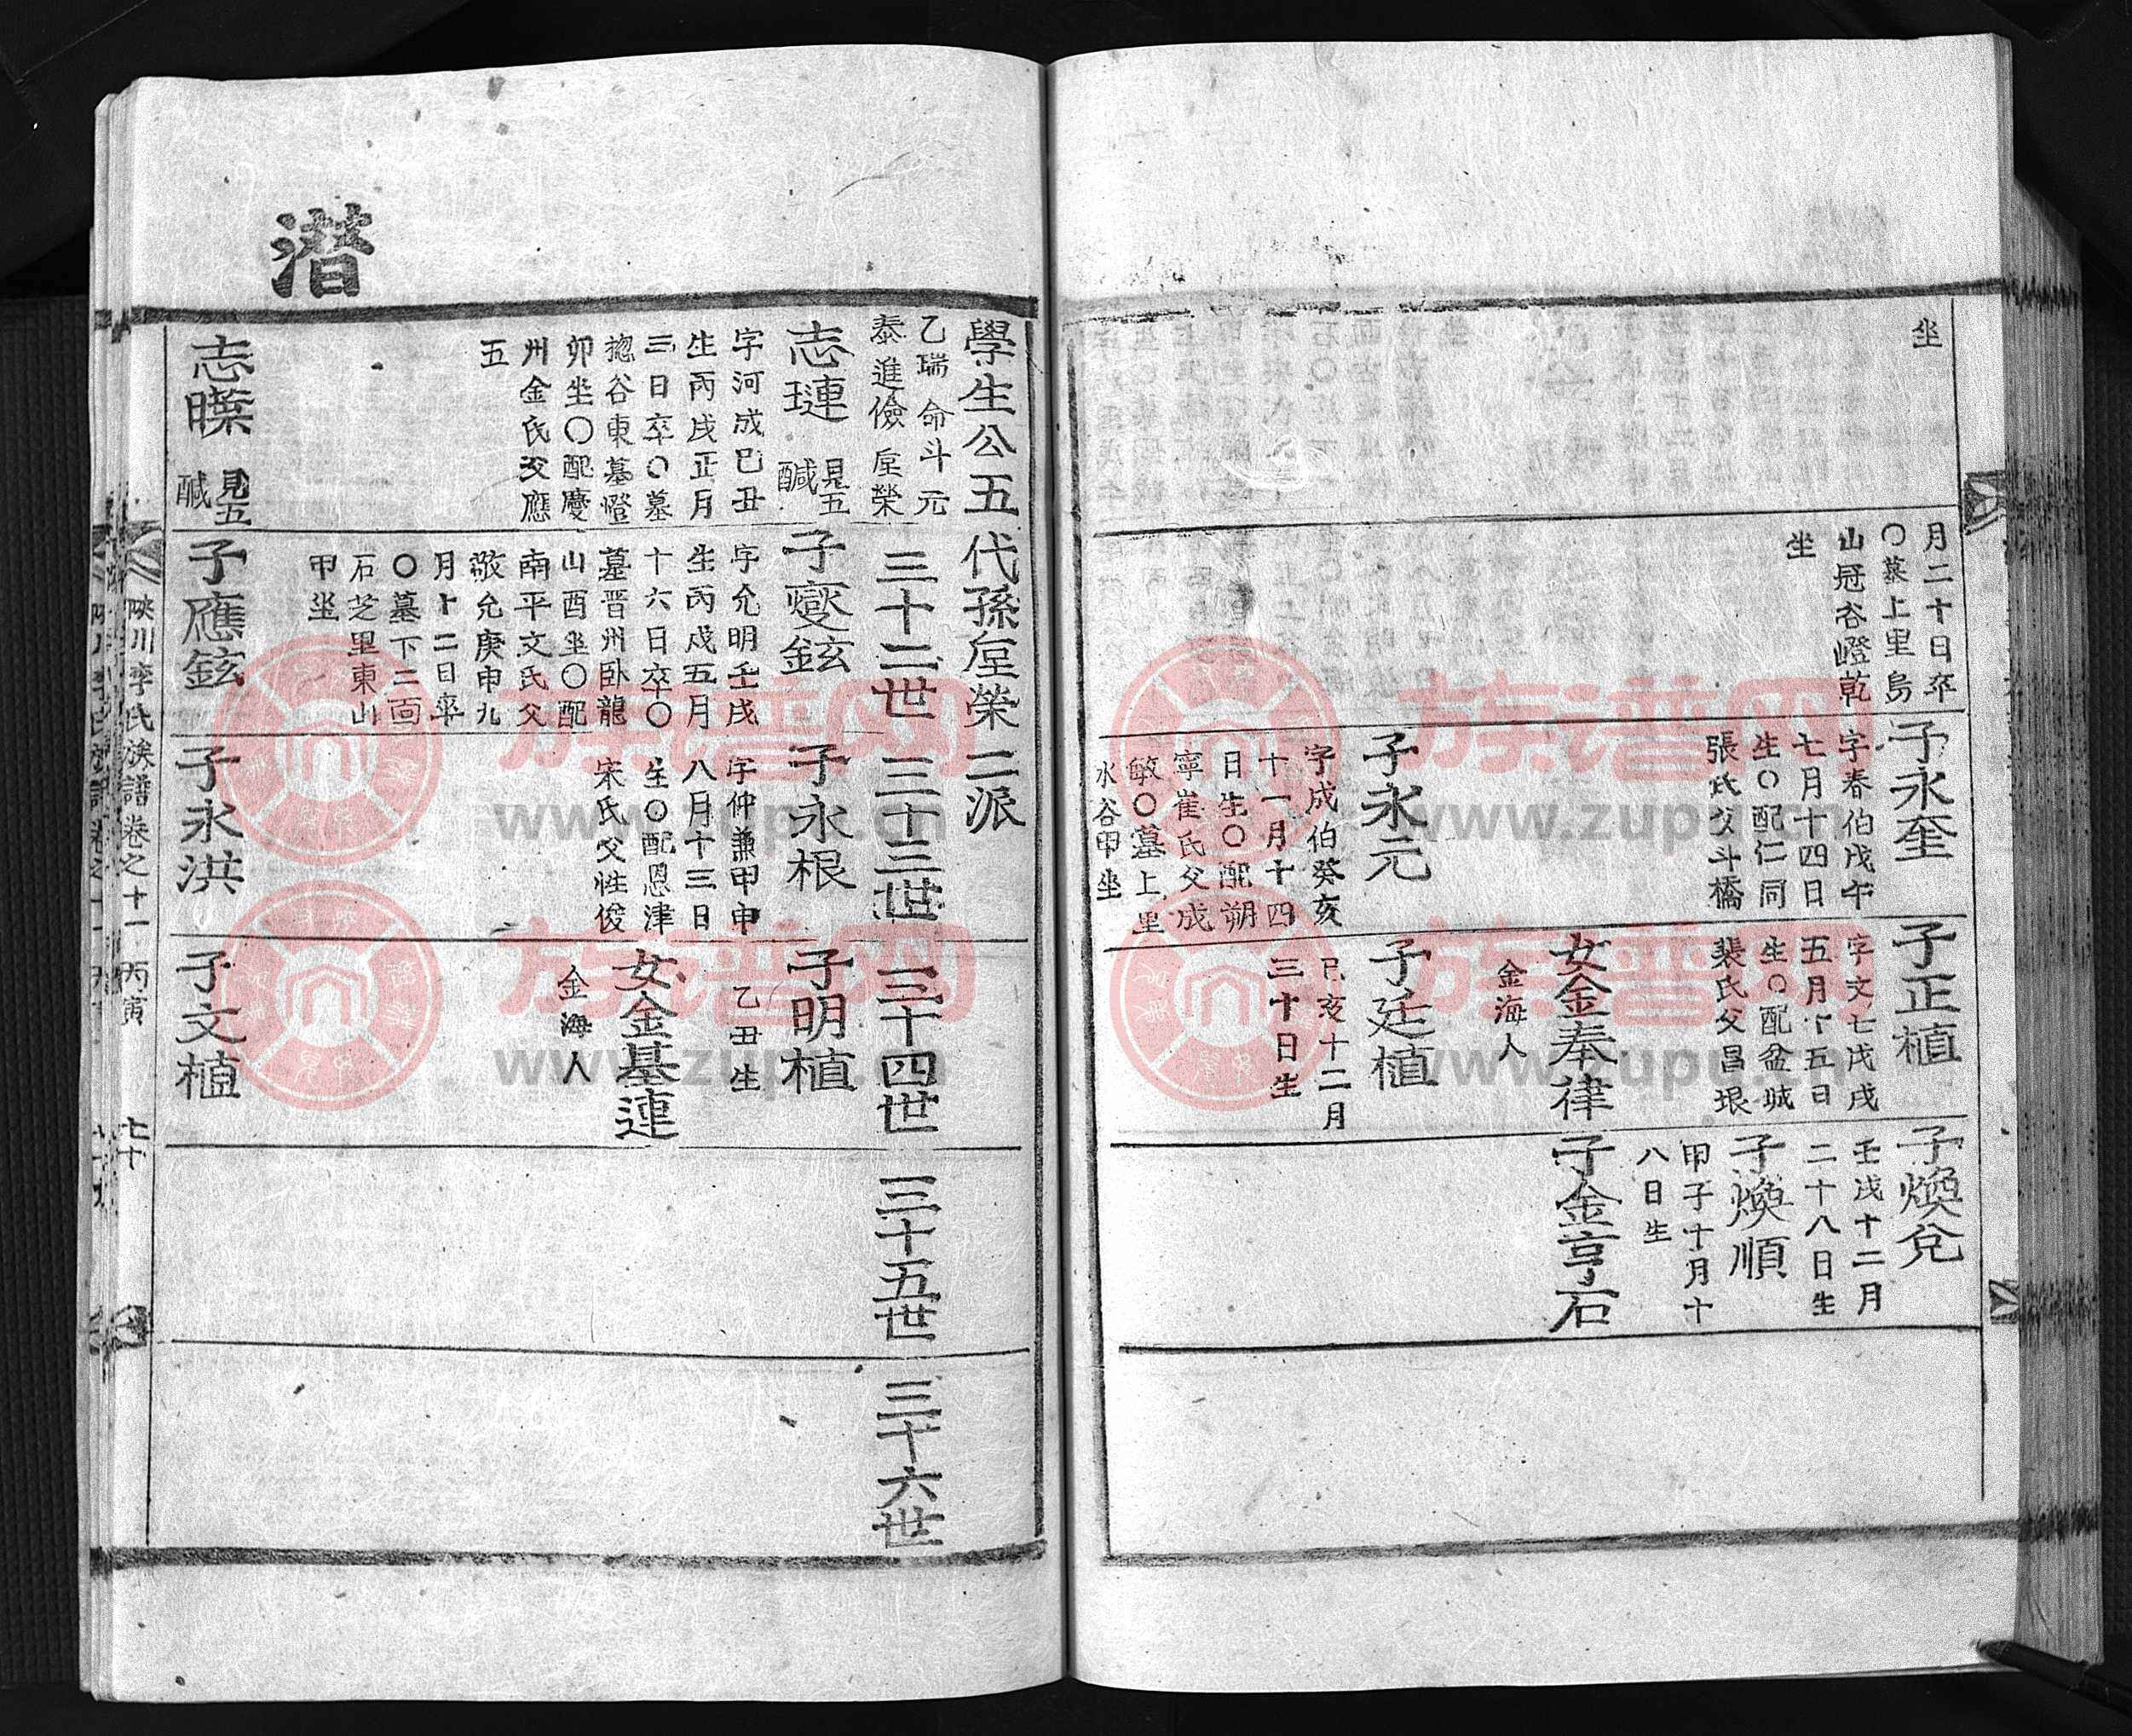 坐
月二十日卒
〇墓上里烏
山冠谷嶝乾
坐
子永奎
字春伯戊午
七月十四日
生〇配仁同
張氏父斗橋
子永元
字成伯癸亥
十一月十四
日生〇配朔
寧崔氏父成
敏〇墓上里
水谷甲坐
子正植
字文七戊戌
五月十五日
生〇配盆城
裴氏父昌垠
女金奉律
金海人
子廷植
己亥十二月
三十日生
子煥兌
壬戌十二月
二十八日生
子煥順
甲子十月十
八日生
子金亨石
潜
學生公五代孫垕榮二派
乙瑞 命斗 元
泰進儉 垕榮
三十二世
三十三世
三十四世
三十五世
三十六世
志璉 見五醎
字河成己丑
生丙戌正月
三日卒〇墓
揔谷東墓嶝
卯坐〇配慶
州金氏父應
五
志曗 見五醎
子燮鉉
字允明壬戌
生丙戌五月
十六日卒〇
墓晋州卧龍
山酉坐〇配
南平文氏父
敬允庚申九
月十二日卒
〇墓下二面
石芝里東山
甲坐
子應鉉
子永根
字仲兼甲申
八月十三日
生〇配恩津
宋氏父性俊
子永洪
子明植
乙丑生
女金基連
金海人
子文植
陜川李氏族譜卷之十一 丙寅 七十
族谱网
www.zupu.cn
族谱网
www.zupu.cn
族谱网
www.zupu.cn
族谱网
www.zupu.cn